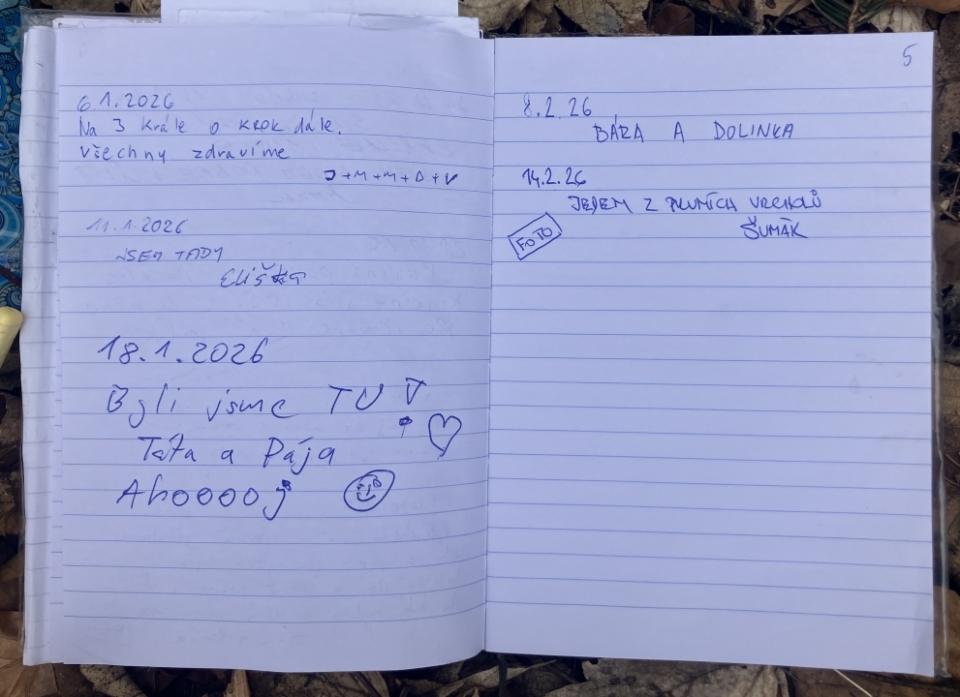 6.1.2026
Na 3 Krále o KROK dále.
Všechny zdravíme
J+M+M+D+V
11.1.2026
JSEM TADY
Eliška
18.1.2026
Byli jsme TU
Táťa a Pája
Ahooooj
5
8.2.26
BÁRA A DOLINKA
14.2.26
JEDEN Z PRVNÍCH VRCHOLŮ
ŠUMÁK
FOTO